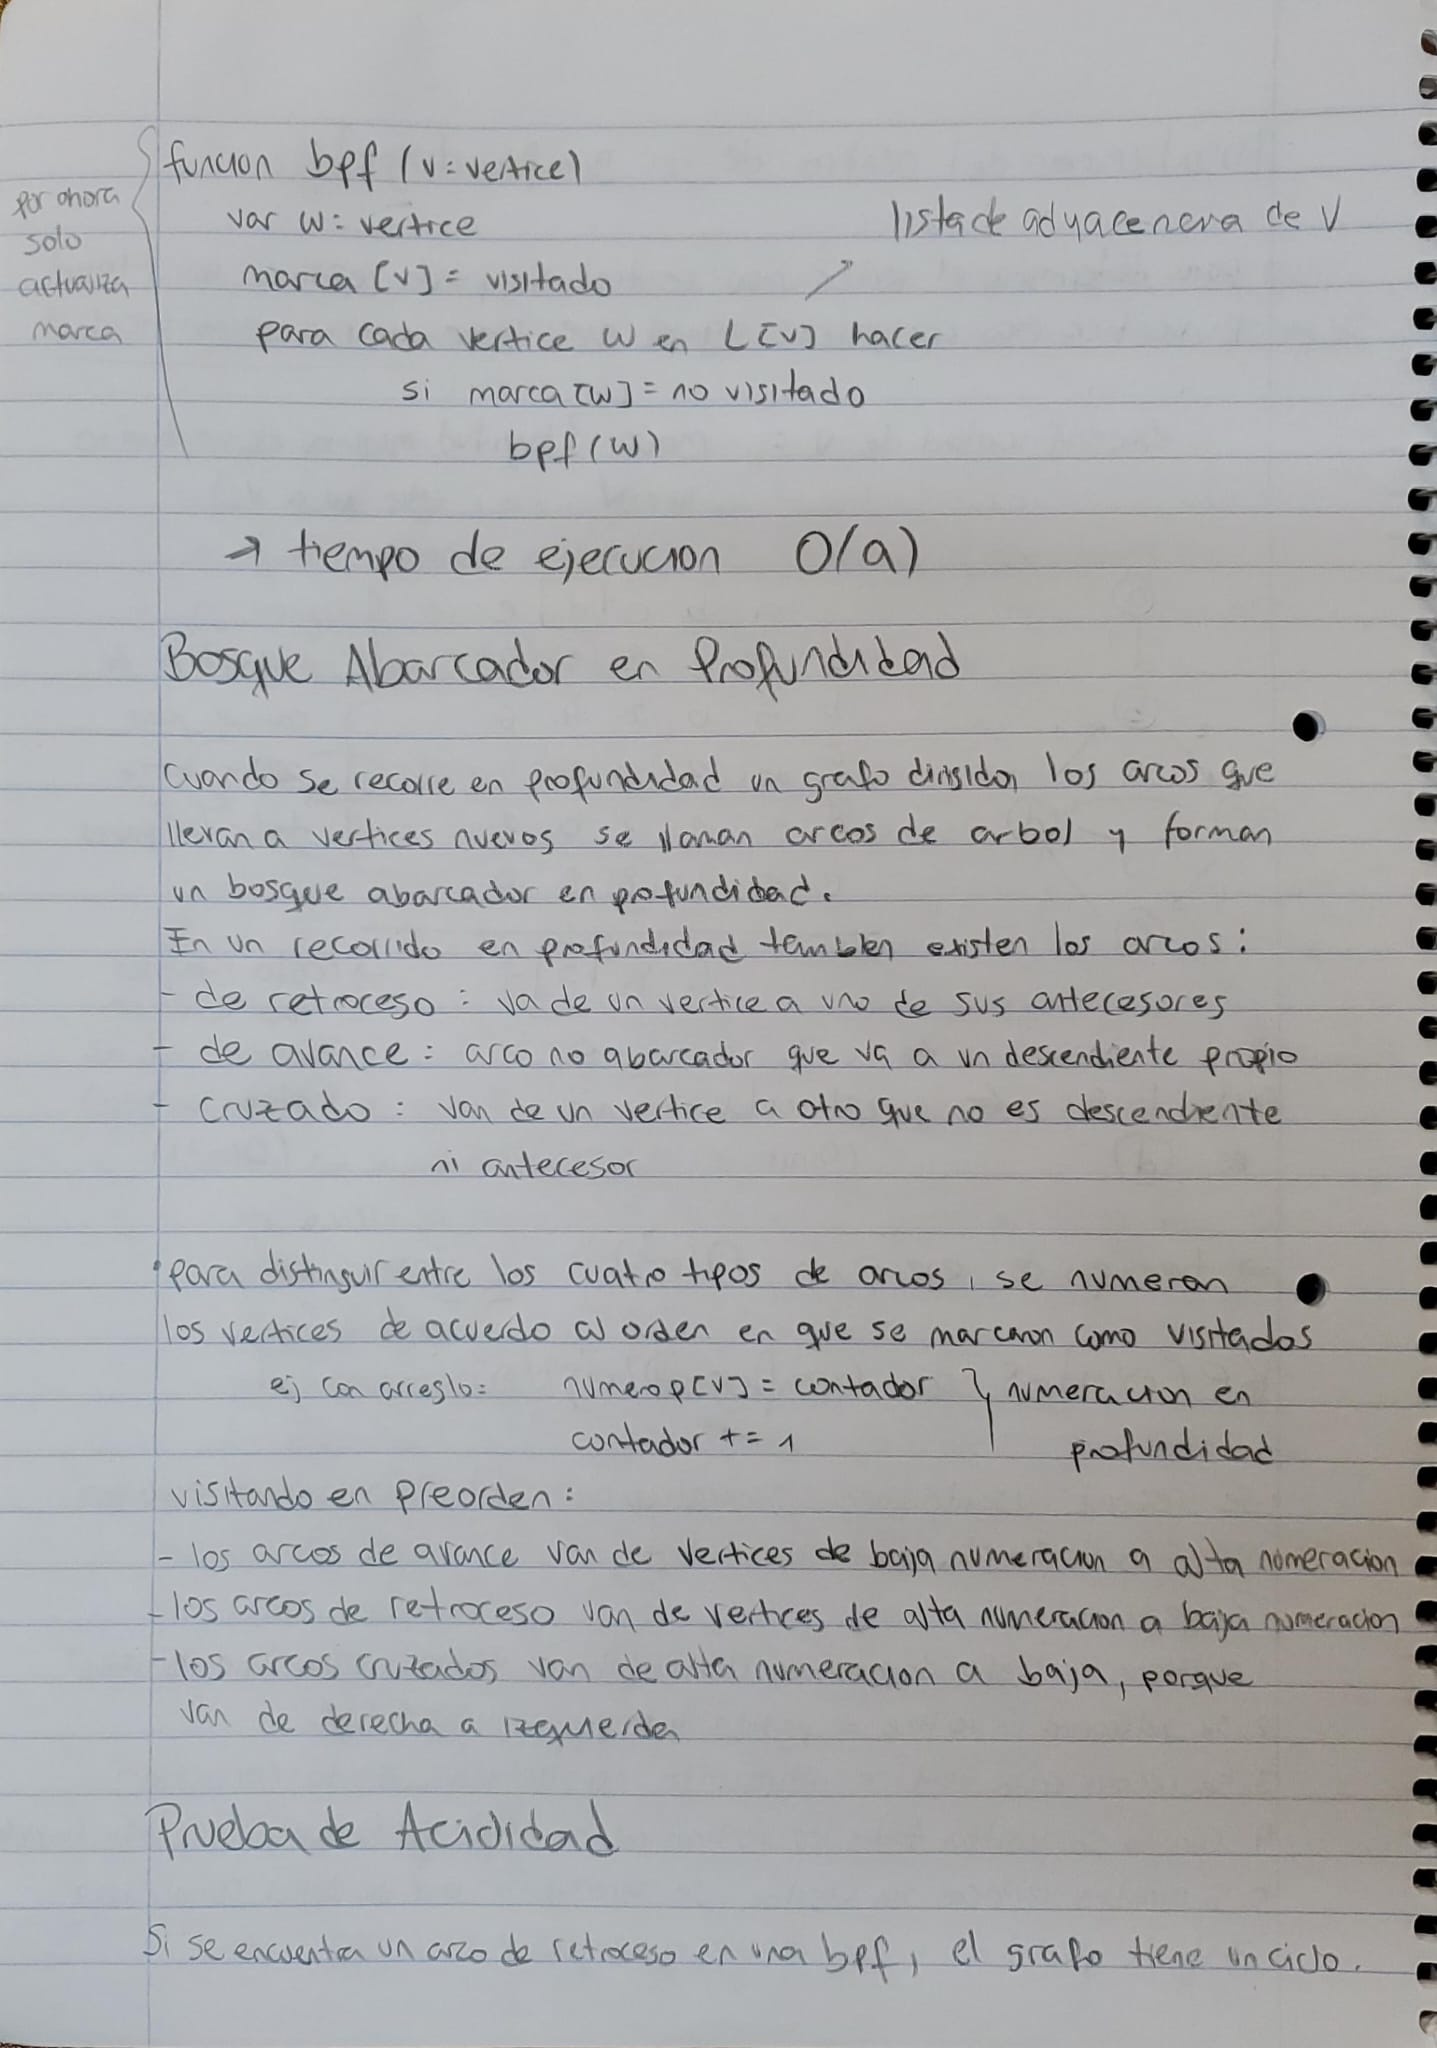 funcion bpf (v: vertice)
por ahora
solo
actualiza
marca
var w: vertice
lista de adyacencia de V
marca [v] = visitado
para cada vertice w en L[v] hacer
si marca [w] = no visitado
bpf (w)
→ tiempo de ejecucion O(a)
Bosque Abarcador en Profundidad
Cuando se recorre en profundidad un grafo dirigido, los arcos que
llevan a vertices nuevos se llaman arcos de arbol y forman
un bosque abarcador en profundidad.
En un recorrido en profundidad tambien existen los arcos:
- de retroceso: va de un vertice a uno de sus antecesores
- de avance: arco no abarcador que va a un descendiente propio
- cruzado: van de un vertice a otro que no es descendiente
ni antecesor
• para distinguir entre los cuatro tipos de arcos, se numeran
los vertices de acuerdo al orden en que se marcaron como visitados
ej con arreglo: numerop[v] = contador } numeracion en
contador += 1 profundidad
visitando en preorden:
- los arcos de avance van de vertices de baja numeracion a alta numeracion
- los arcos de retroceso van de vertices de alta numeracion a baja numeracion
- los arcos cruzados van de alta numeracion a baja, porque
van de derecha a izquierda
Prueba de Aciclidad
Si se encuentra un arco de retroceso en una bpf, el grafo tiene un ciclo.